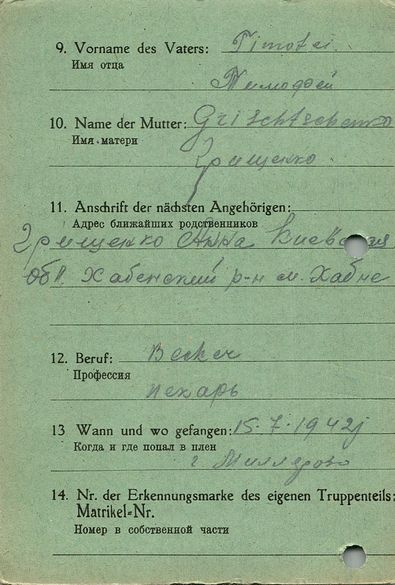 9. Vorname des Vaters: Timofei
Имя отца
Тимофей
10. Name der Mutter: Grischtschenko
Имя матери
Грищенко
11. Anschrift der nächsten Angehörigen:
Адрес ближайших родственников
Грищенко Анна Киевская
обл. Хабенский р-н м. Хабне
12. Beruf: Becker
Профессия
пекарь
13 Wann und wo gefangen: 15.7.1942j
Когда и где попал в плен
г. Миллерово
14. Nr. der Erkennungsmarke des eigenen Truppenteils:
Matrikel-Nr.
Номер в собственной части